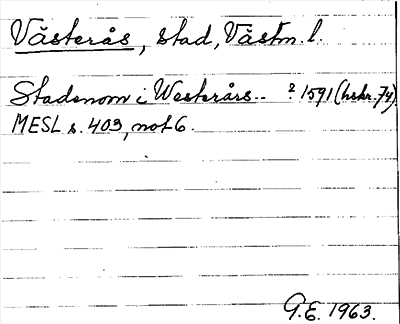 Västerås, stad, Västm. l.
Stadenom i Westerårs.. ? 1591 (hskr. 74)
MESL s. 403, not 6.
G.E. 1963.